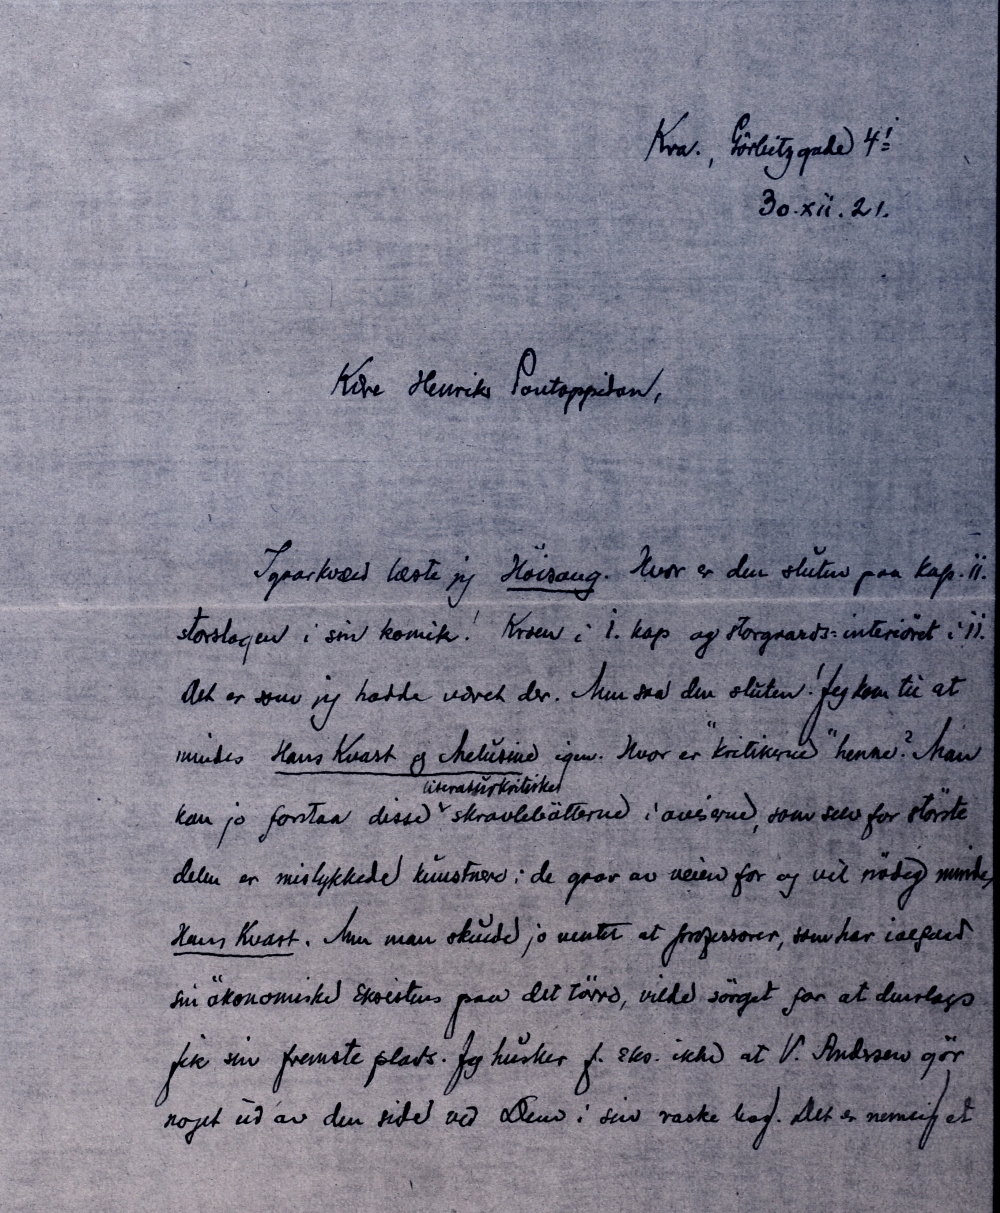 Kra., Görbitzgade 4!
30.xii.21.
Kære Henrik Pontoppidan,
Igaarkvæld læste jeg Höisang. Hvor er den sluten paa kap. ii.
storslagen i sin komik! Kroen i 1. kap og storgaards-interiöret i ii.
Det er som jeg hadde været der. Men saa den sluten! Jeg kom til at
mindes Hans Kvast og Melusine igen. Hvor er "kritikerne" henne? Man
kan jo forstaa disse literaturkritiske skravlebötterne i aviserne, som selv for störste
delen er mislykkede kunstnere: de gaar av veien for og vil nödig mindes
Hans Kvast. Men man skulde jo ventet at professorer, som har ialfald
sin ökonomiske eksistens paa det törre, vilde sörget for at denslags
fik sin fremste plads. Jeg husker f. eks. ikke at V. Andersen gör
noget ud av den side ved Dem i sin raske bog. Det er nemlig et